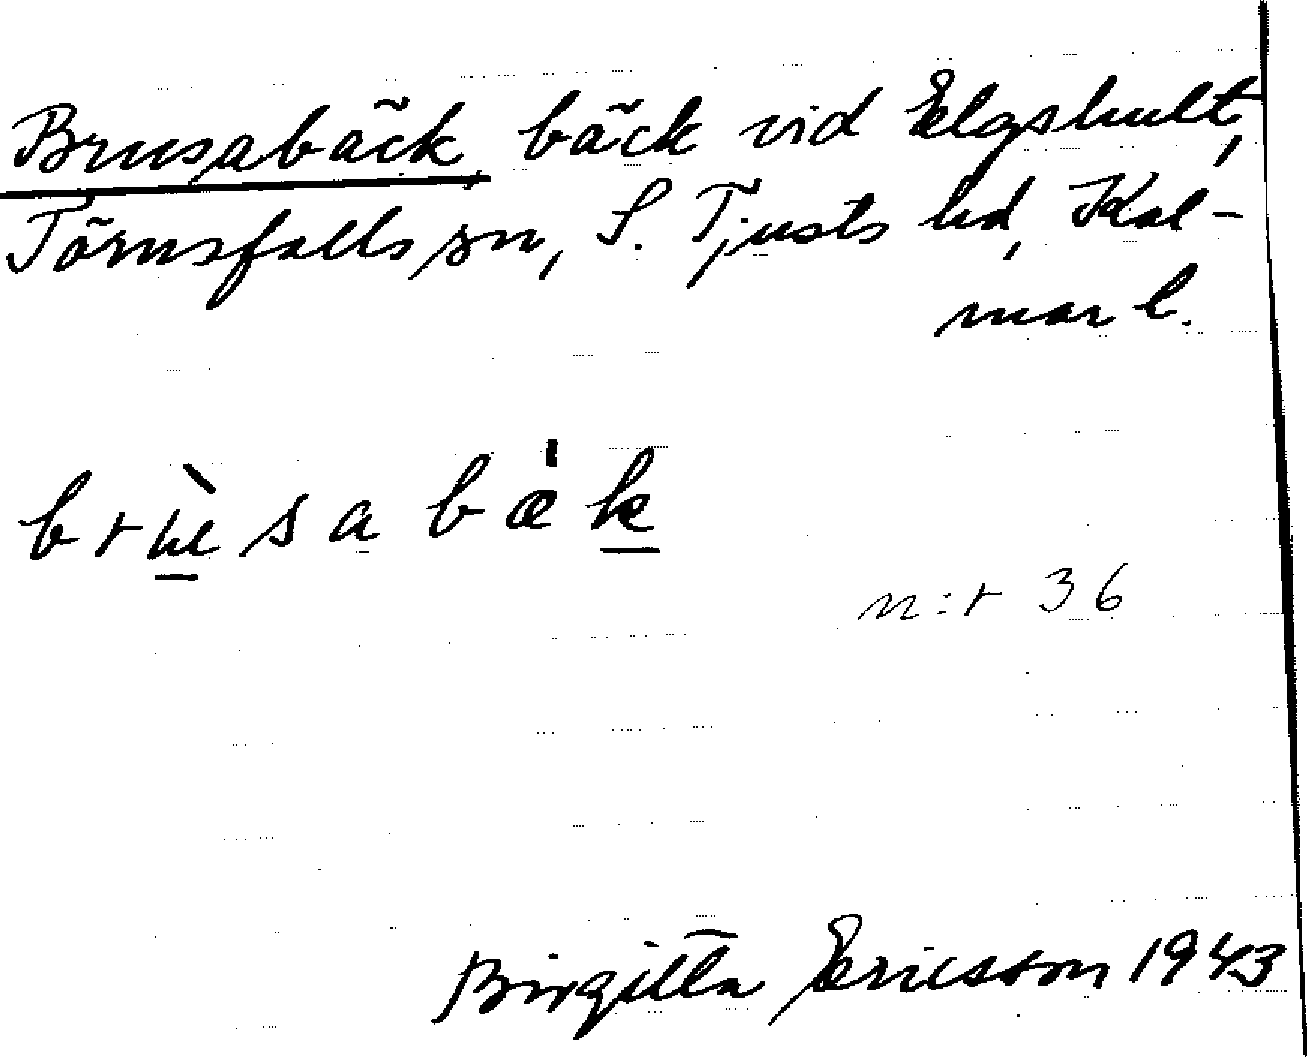 Brusabäck bäck vid Elgshult,
Törnsfalls sn, S. Tjusts hd, Kal-
mar l.
brùsabæ̍k
n:r 36
Birgitta Ericsson 1943